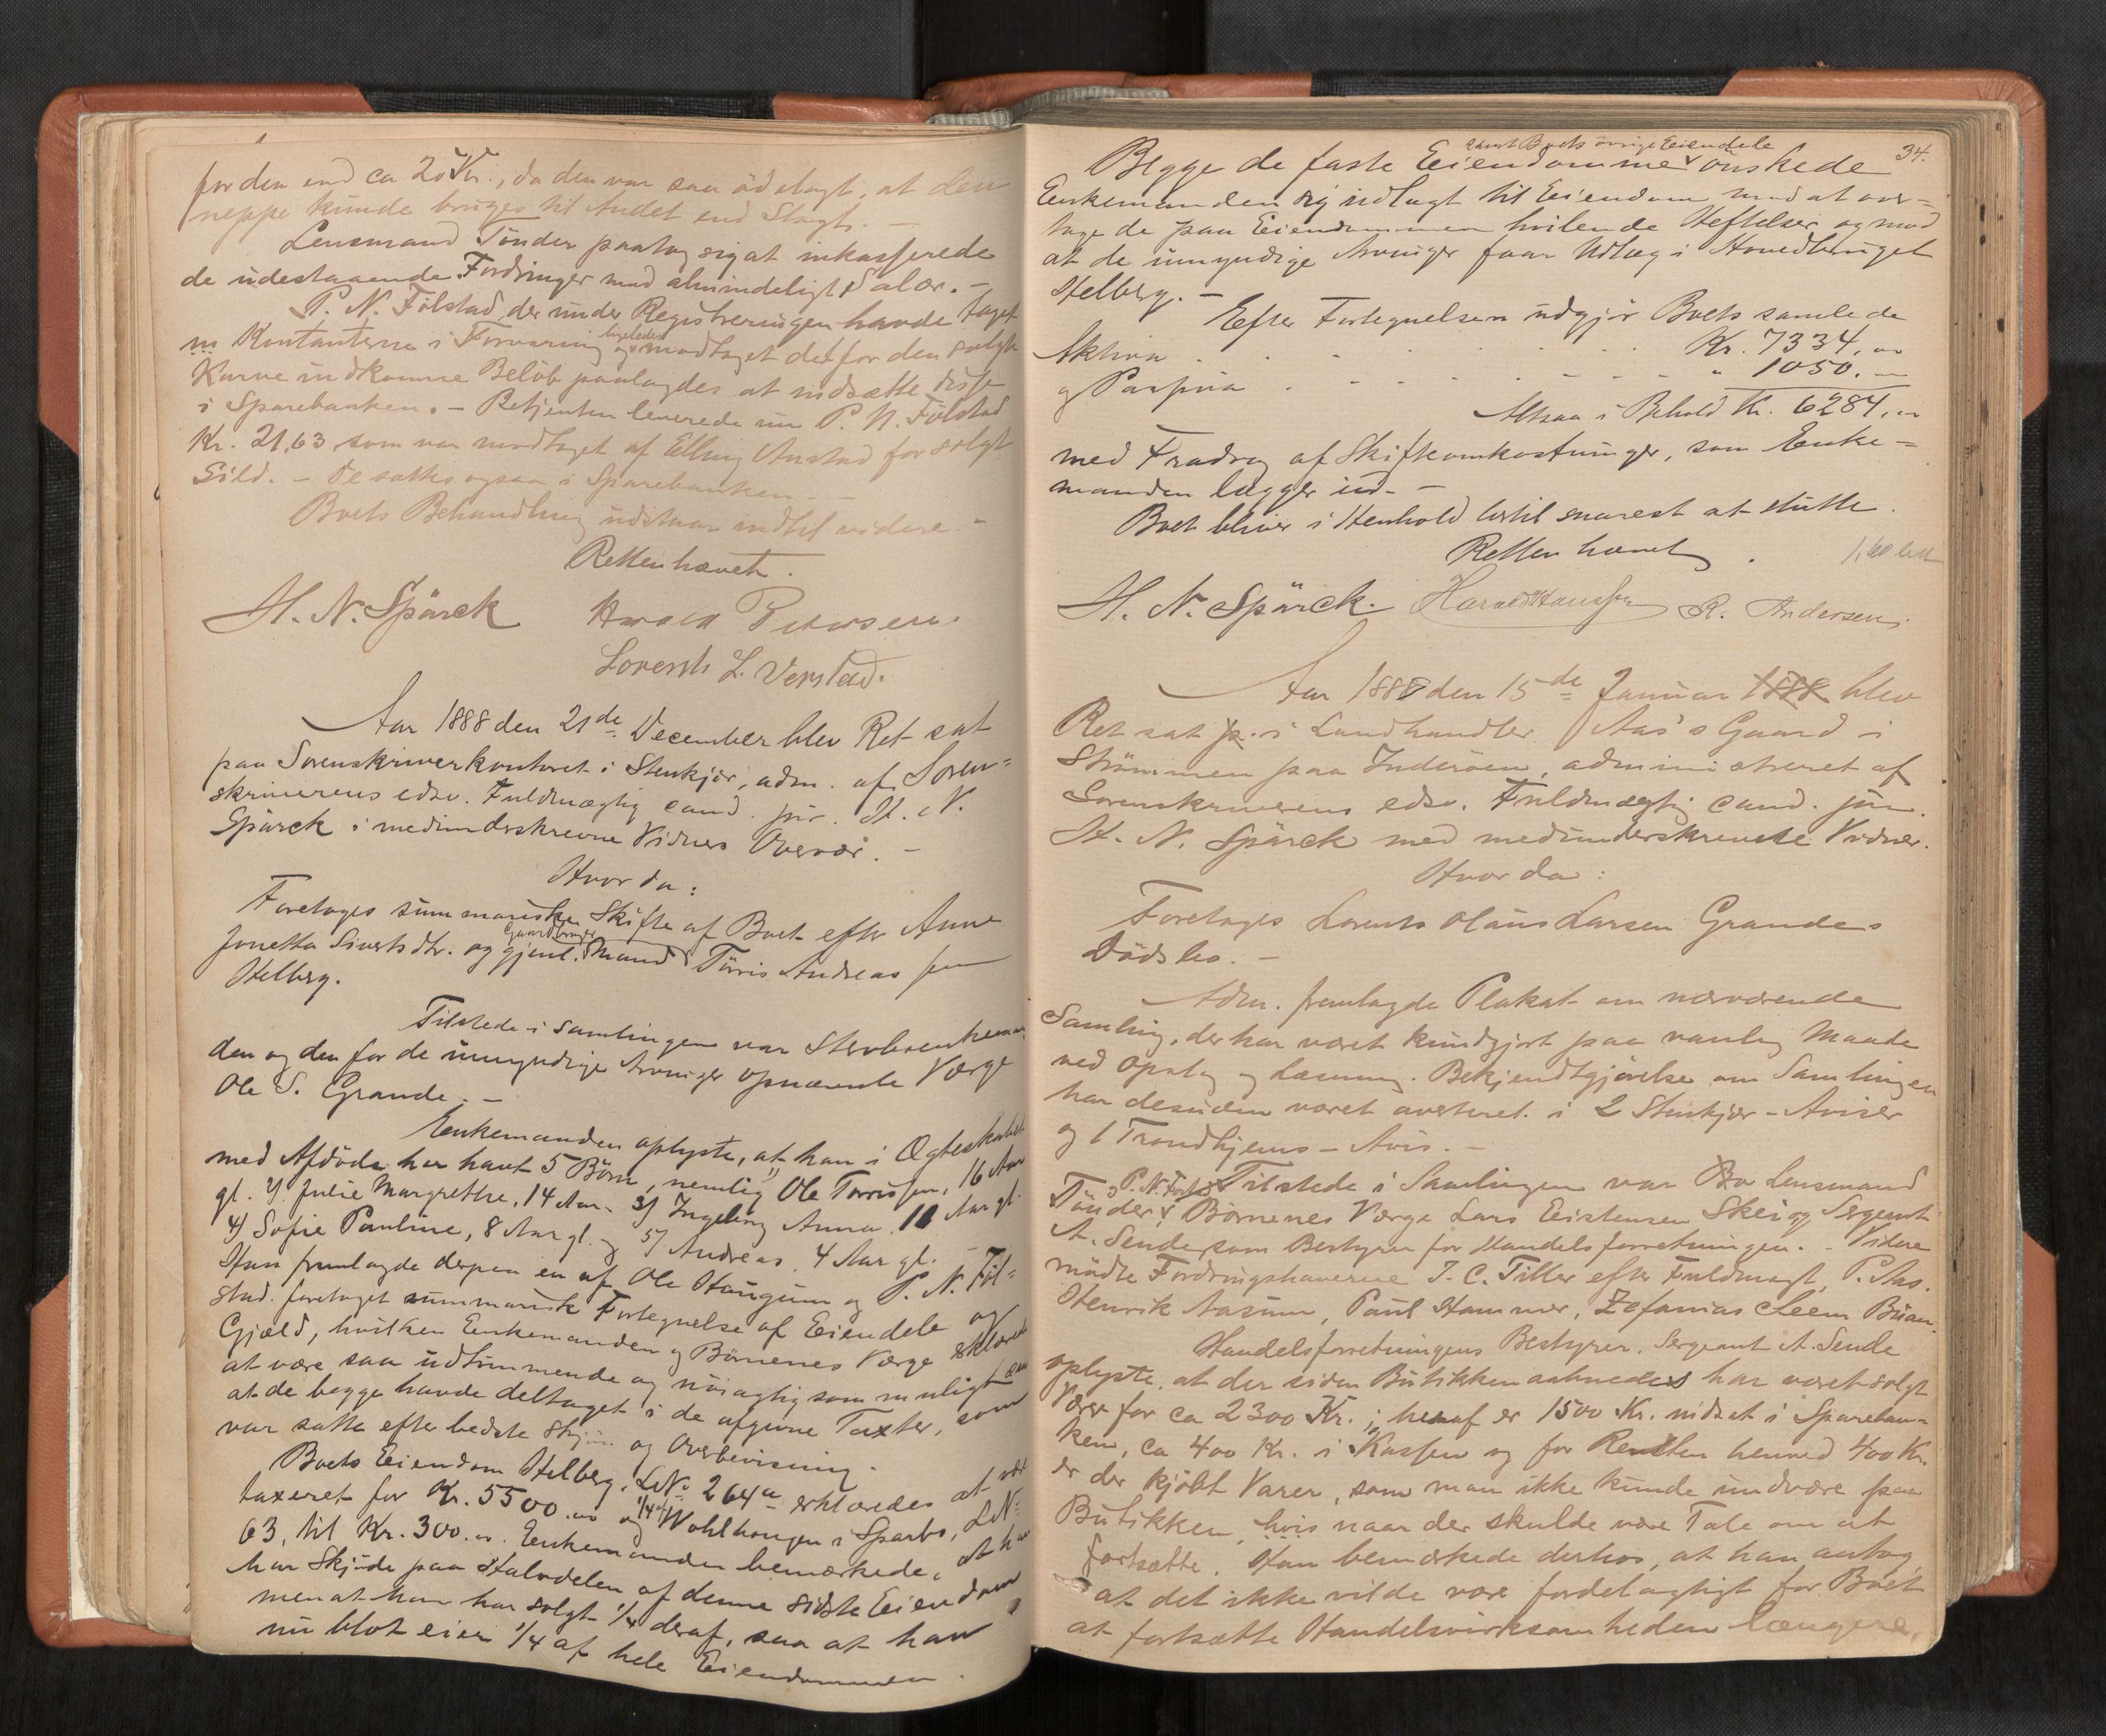 for den end ca 20 Kr., da den var saa ödelagt, at den
neppe kunde bruges til Andet end Slagt. –
Lensmand Tönder paatog sig at inkasserede
de udestaaende Fordringer mod almindeligt Salær. –
P. N. Fölstad, der under Registreringen havde taget
Kontanterne i Forvaring og ligeledes modtaget det for den solgte
indkomne Belöb paalagdes at indsætte disse
i Sparebanken. – Betjenten leverede nu P. N. Fölstad
Kr. 21,63 som var modtaget af Elling Anstad for solgt
Sild. – De sattes ogsaa i Sparebanken. –
Boets Behandling udstaar indtil videre. –
Retten hævet.
H. N. Spärck Harald Petersen.
Lorents L. Verstad.
Aar 1888 den 21de December blev Ret sat
paa Sorenskriverkontoret i Stenkjær, adm. af Soren=
skriverens edsv. Fuldmægtig cand. jur. H. N.
Spärck i medunderskrevne Vidners Overvær. –
Hvorda:
Foretoges summariske Skifte af Boet efter Anne
Jonetta Sivertsdtr. og gjenl. Mand Gaardbruger Törris Andreassen
Helberg.
Tilstede i Samlingen var Stervboenkeman
den og den for de umyndige Arvinger opnævnte Værge
Ole S. Grande. –
Enkemanden oplyste, at han i Ægteskabet
med Afdöde har havt 5 Börn, nemlig 1) Ole Torrissen, 16 Aar
gl. 2) Julie Margrethe, 14 Aar. 3) Ingeborg Anna 11 Aar gl.
4) Sofie Pauline, 8 Aar gl. og 5) Andreas, 4 Aar gl. –
Han fremlagde derpaa en af Ole Haugum og P. N. Föl=
stad foretaget summarisk Fortegnelse af Eiendele og
Gjæld, hvilken Enkemanden og Börnenes Værge erklærede
at være saa udtömmende og nöiagtig som muligt
at de begge havde deltaget i de afgivne Taxter, som
var satte efter bedste Skjön og Overbevisning.
Boets Eiendom Helberg, LNo 264a erklæredes at være
taxeret for Kr. 5500.00 og 1/4 af Wohlhaugen i Sparbo, LN=
63, til Kr. 300.00. Enkemanden bemærkede, at han
har Skjöde paa Halvdelen af denne sidste Eiendom
men at han har solgt 1/4 deraf, saa at han
nu blot eier 1/4 af hele Eiendommen.
34.
Begge de faste Eiendomme samt Boets övrige Eiendele önskede
Enkemanden sig udlagt til Eiendom mod at over=
tage de paa Eiendommen hvilende Heftelser og mod
at de umyndige Arvinger faar Udlæg i Hovedbruget
Helberg. –
Efter Fortegnelsen udgjör Boets samlede
Aktiva . . . . . . . Kr. 7334,00
og Passiva . . . . . . " 1050. –
Altsaa i Behold Kr. 6284,00
med Fradrag af Skifteomkostninger, som Enke=
manden lægger ud. –
Boet bliver i Henhold hertil snarest at slutte.
Retten hævet.
H. N. Spärck. Harald Hanssen R. Andersen.
Aar 1888 den 15de Januar 1888 blev
Ret sat p. i Landhandler Aas's Gaard i
Strömmen paa Inderöen, administreret af
Sorenskriverens edsv. Fuldmægtig cand. jur.
H. N. Spärck med medunderskrevne Vidner.
Hvorda:
Foretoges Lorents Olaus Larsen Grandes
Dödsbo. –
Adm. fremlagde Plakat om nærværende
Samling, der har været kundgjort paa vanlig Maade
ved Opslag og Læsning. Bekjendtgjörelse om Samlingen
har desuden været averteret i 2 Stenkjær-Aviser
og 1 Trondhjems-Avis. –
Tilstede i Samlingen var Bo Lensmand
Tönder, P. N. Börnenes Værge Lars Eistensen Skei og Sergeant
A. Sende som Bestyrer for Handelsforretningen. – Videre
mödte Fordringshaverne J. C. Tiller efter Fuldmagt, P. Aas.
Henrik Aasum, Paul Hammer, Zefanias Sleem Buan.
Handelsforretningens Bestyrer, Sergeant A. Sende
oplyste, at der siden Butikken aabnedes har været solgt
Varer for ca 2300 Kr.; heraf er 1500 Kr. indsat i Spareban=
ken, ca 400 Kr. i Kassen og for Resten henved 400 Kr.
er der kjöbt Varer, som man ikke kunde undvære paa
Butikken, hvis naar der skulde være Tale om at
fortsætte. Han bemærkede derhos, at han antog,
at det ikke vilde være fordelagtigt for Boet
at fortsætte Handelsvirksomheden længere,